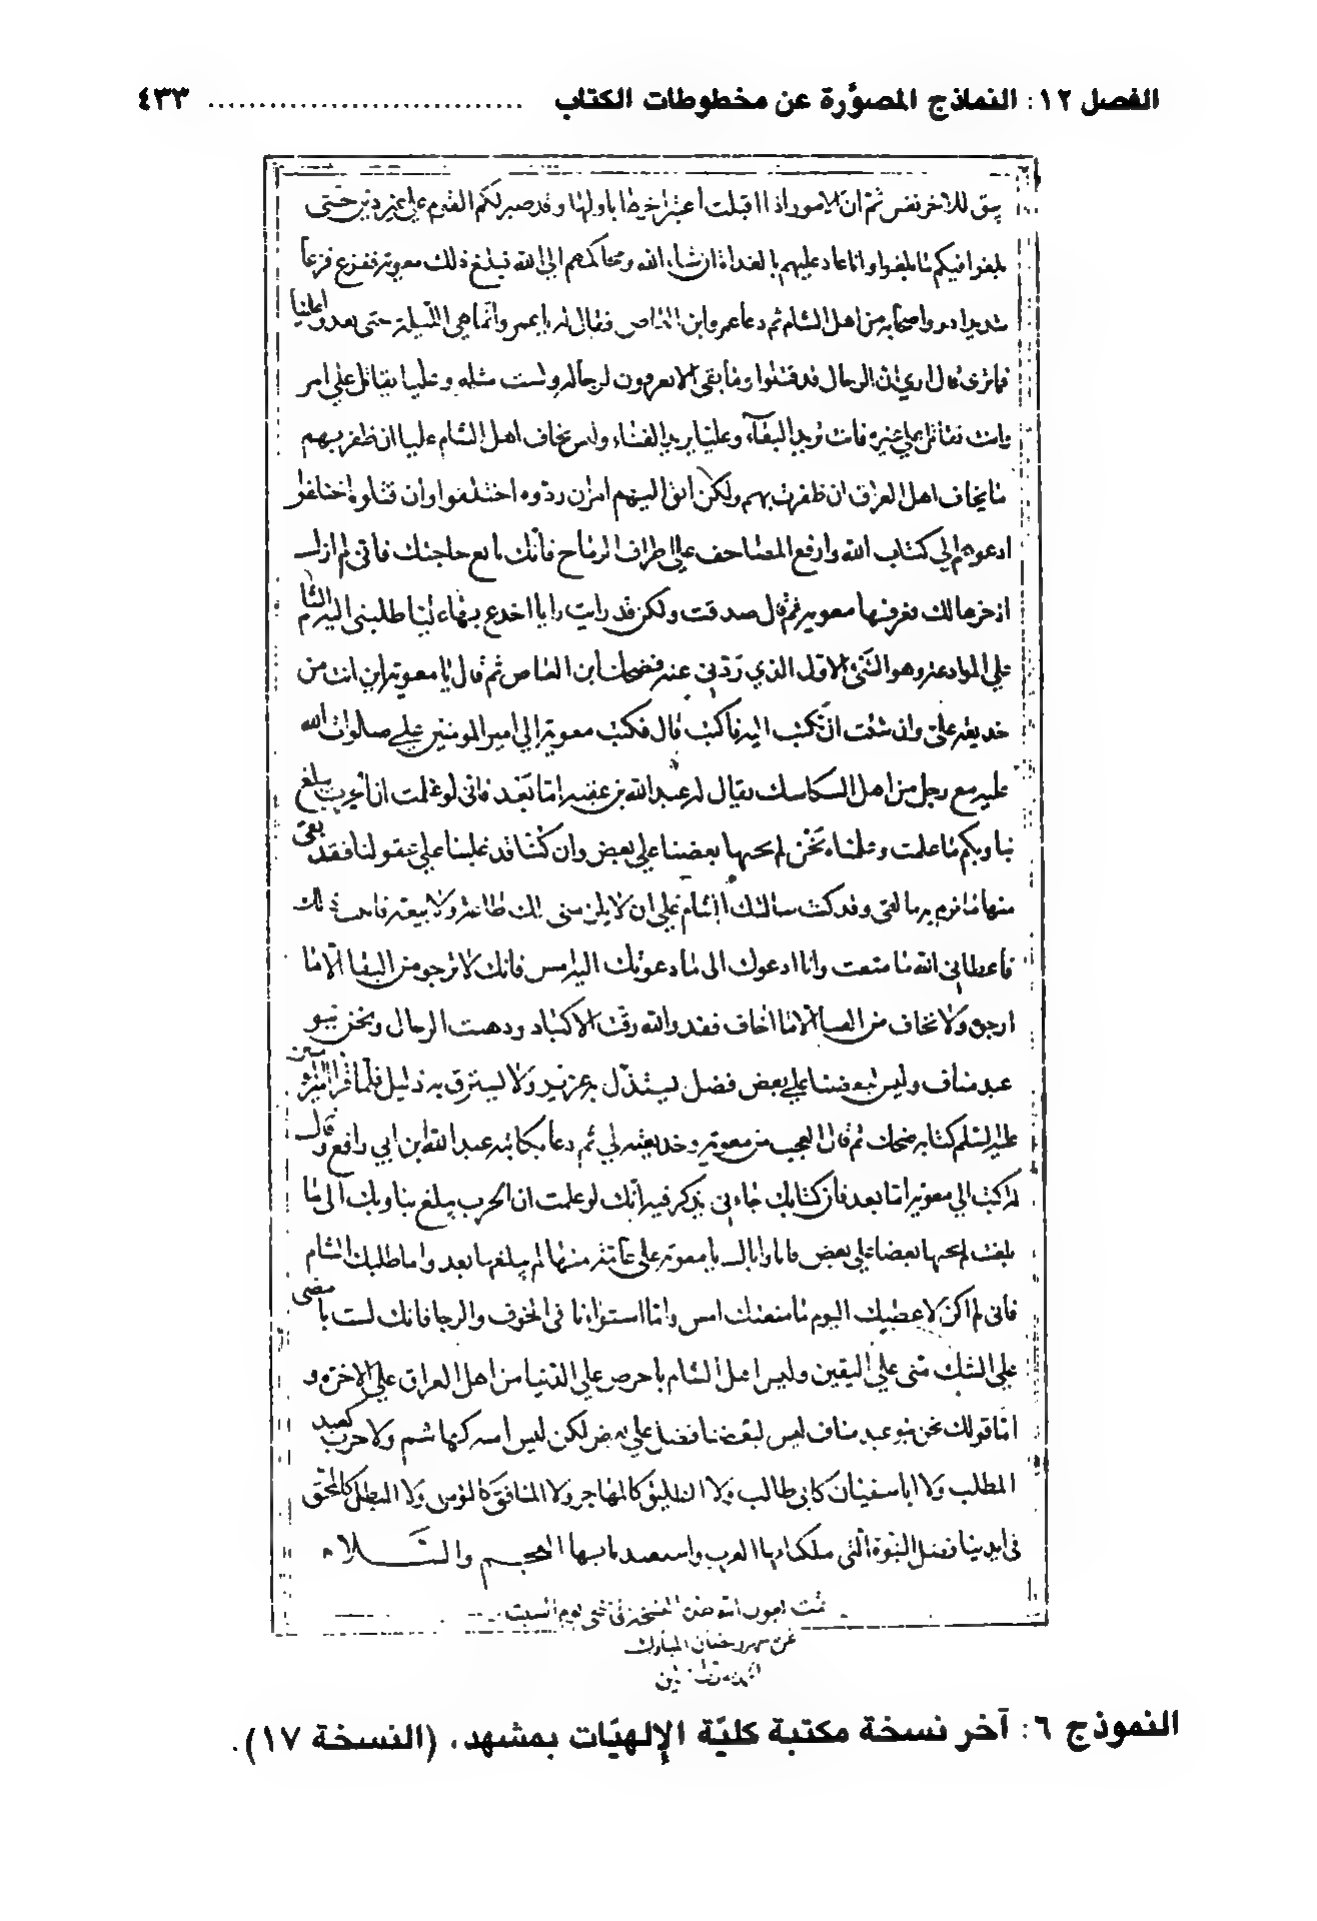 الفصل ١٢: النماذج المصوَّرة عن مخطوطات الكتاب .............................. ٤٣٣
يبق للاخر نفس ثم ان الامور اذا اقبلت اعتبر اخرها باولها وقد صبر لكم القوم على غير دين حتى
بلغوا فيكم ما بلغوا وانا غاد عليهم بالغداة ان شاء الله ومحاكمهم الى الله فبلغ ذلك معوية ففزع فزعا
شديدا هو واصحابه من اهل الشام ثم دعا عمرو ابن العاص فقال له يا عمرو انما هي الليلة حتى يغدو علينا
فما ترى قال ارى ان الرجال قد قتلوا وما بقى لا يعرفون لرجاله ولست مثله وعليا يقاتل على امر
وانت تقاتل على غيره فانت تريد البقآء وعليا يريد الفناء وليس يخاف اهل الشام عليا ان ظفر بهم
ما يخاف اهل العراق ان ظفرت بهم ولكن الق اليهم امرا ان ردوه اختلفوا وان قبلوه اختلفوا
ادعوهم الى كتاب الله وارفع المصاحف على اطراف الرماح فانك بالغ حاجتك فانى لم ازل
ادخرها لك فعرفها معوية ثم قال صدقت ولكن قد رايت رايا اخدع به عليا طلبتى اليه الشام
على الموادعة وهو الشئ الاول الذي ردني عنه فضحك ابن العاص ثم قال يا معوية اين انت من
خديعة على وان شئت ان تكتب اليه فاكتب قال فكتب معوية الى امير المومنين على صلوات الله
عليه مع رجل من اهل السكاسك يقال له عبد الله بن عقبه اما بعد فانى لو علمت ان الحرب يبلغ
بنا وبكم ما علمت وعلمناه نحن لم يجنها بعضنا على بعض وان كنا قد غلبنا على عقولنا فقد بقى
منها ما نرم به ما بقى وقد كنت سالتك الشام على ان لا يلزمنى لك طاعة ولا بيعة فابيت ذلك
فاعطاني الله ما منعت وانا ادعوك الى ما دعوتك اليه امس فانك لا ترجو من البقا الا ما
ارجو ولا تخاف من الفنا الا ما اخاف فقد والله رقت الاكباد وذهبت الرجال ونحن بنو
عبد مناف وليس لبعضنا على بعض فضل يستذل به عزيز ولا يسترق به ذليل فلما قرا امير المؤمنين
عليه السلم كتابه ضحك ثم قال العجب من معوية وخديعته لي ثم دعا بكاتبه عبد الله ابن ابي رافع وقال
له اكتب الي معوية اما بعد فان كتابك جاءني تذكر فيه انك لو علمت ان الحرب يبلغ بنا وبك الى ما
بلغت لم يجنها بعضنا على بعض فانا واياك يا معوية على غاية منها لم يبلغها بعد واما طلبك الشام
فانى لم اكن لاعطيك اليوم ما منعتك امس واما استواءنا فى الخوف والرجا فانك لست بامضى
على الشك منى على اليقين وليس اهل الشام باحرص على الدنيا من اهل العراق على الاخرة و
اما قولك نحن بنو عبد مناف ليس لبعضنا فضل على بعض لكن ليس اميه كهاشم ولا حرب كعبد
المطلب ولا ابا سفيان كابى طالب ولا الطليق كالمهاجر ولا المنافق كالمؤمن ولا المبطل كالمحق
فى ايدينا فضل النبوة التى ملكنا بها العرب واستعبدنا بها العجم والسلام
تمت بعون الله هذه النسخة في يوم السبت
من شهر رمضان المبارك
النموذج ٦: آخر نسخة مكتبة كليّة الإلهيّات بمشهد، (النسخة ١٧).